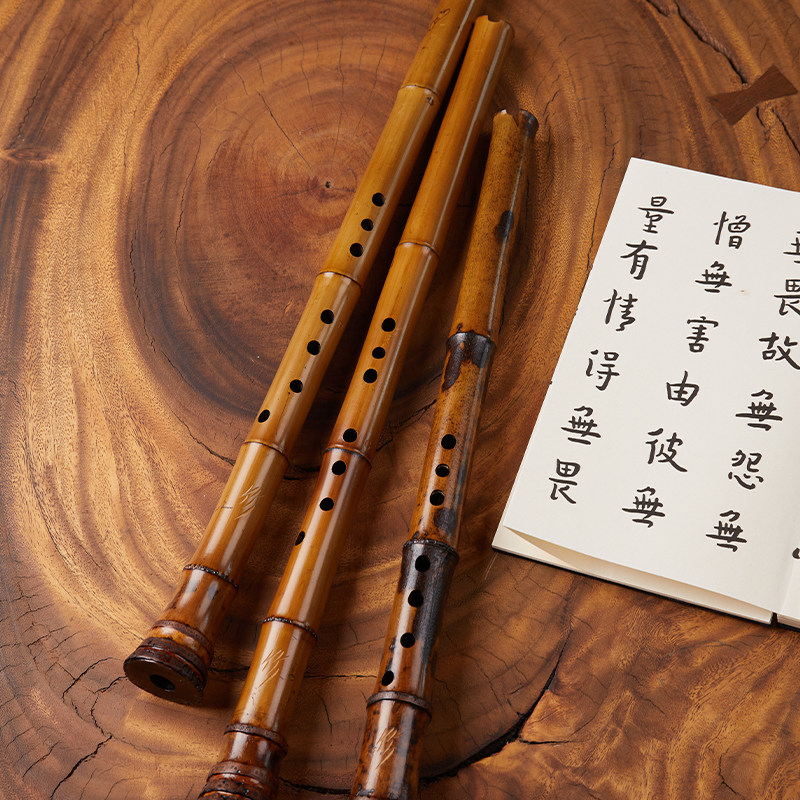 畏故無怨無
憎無害由彼無
量有情得無畏